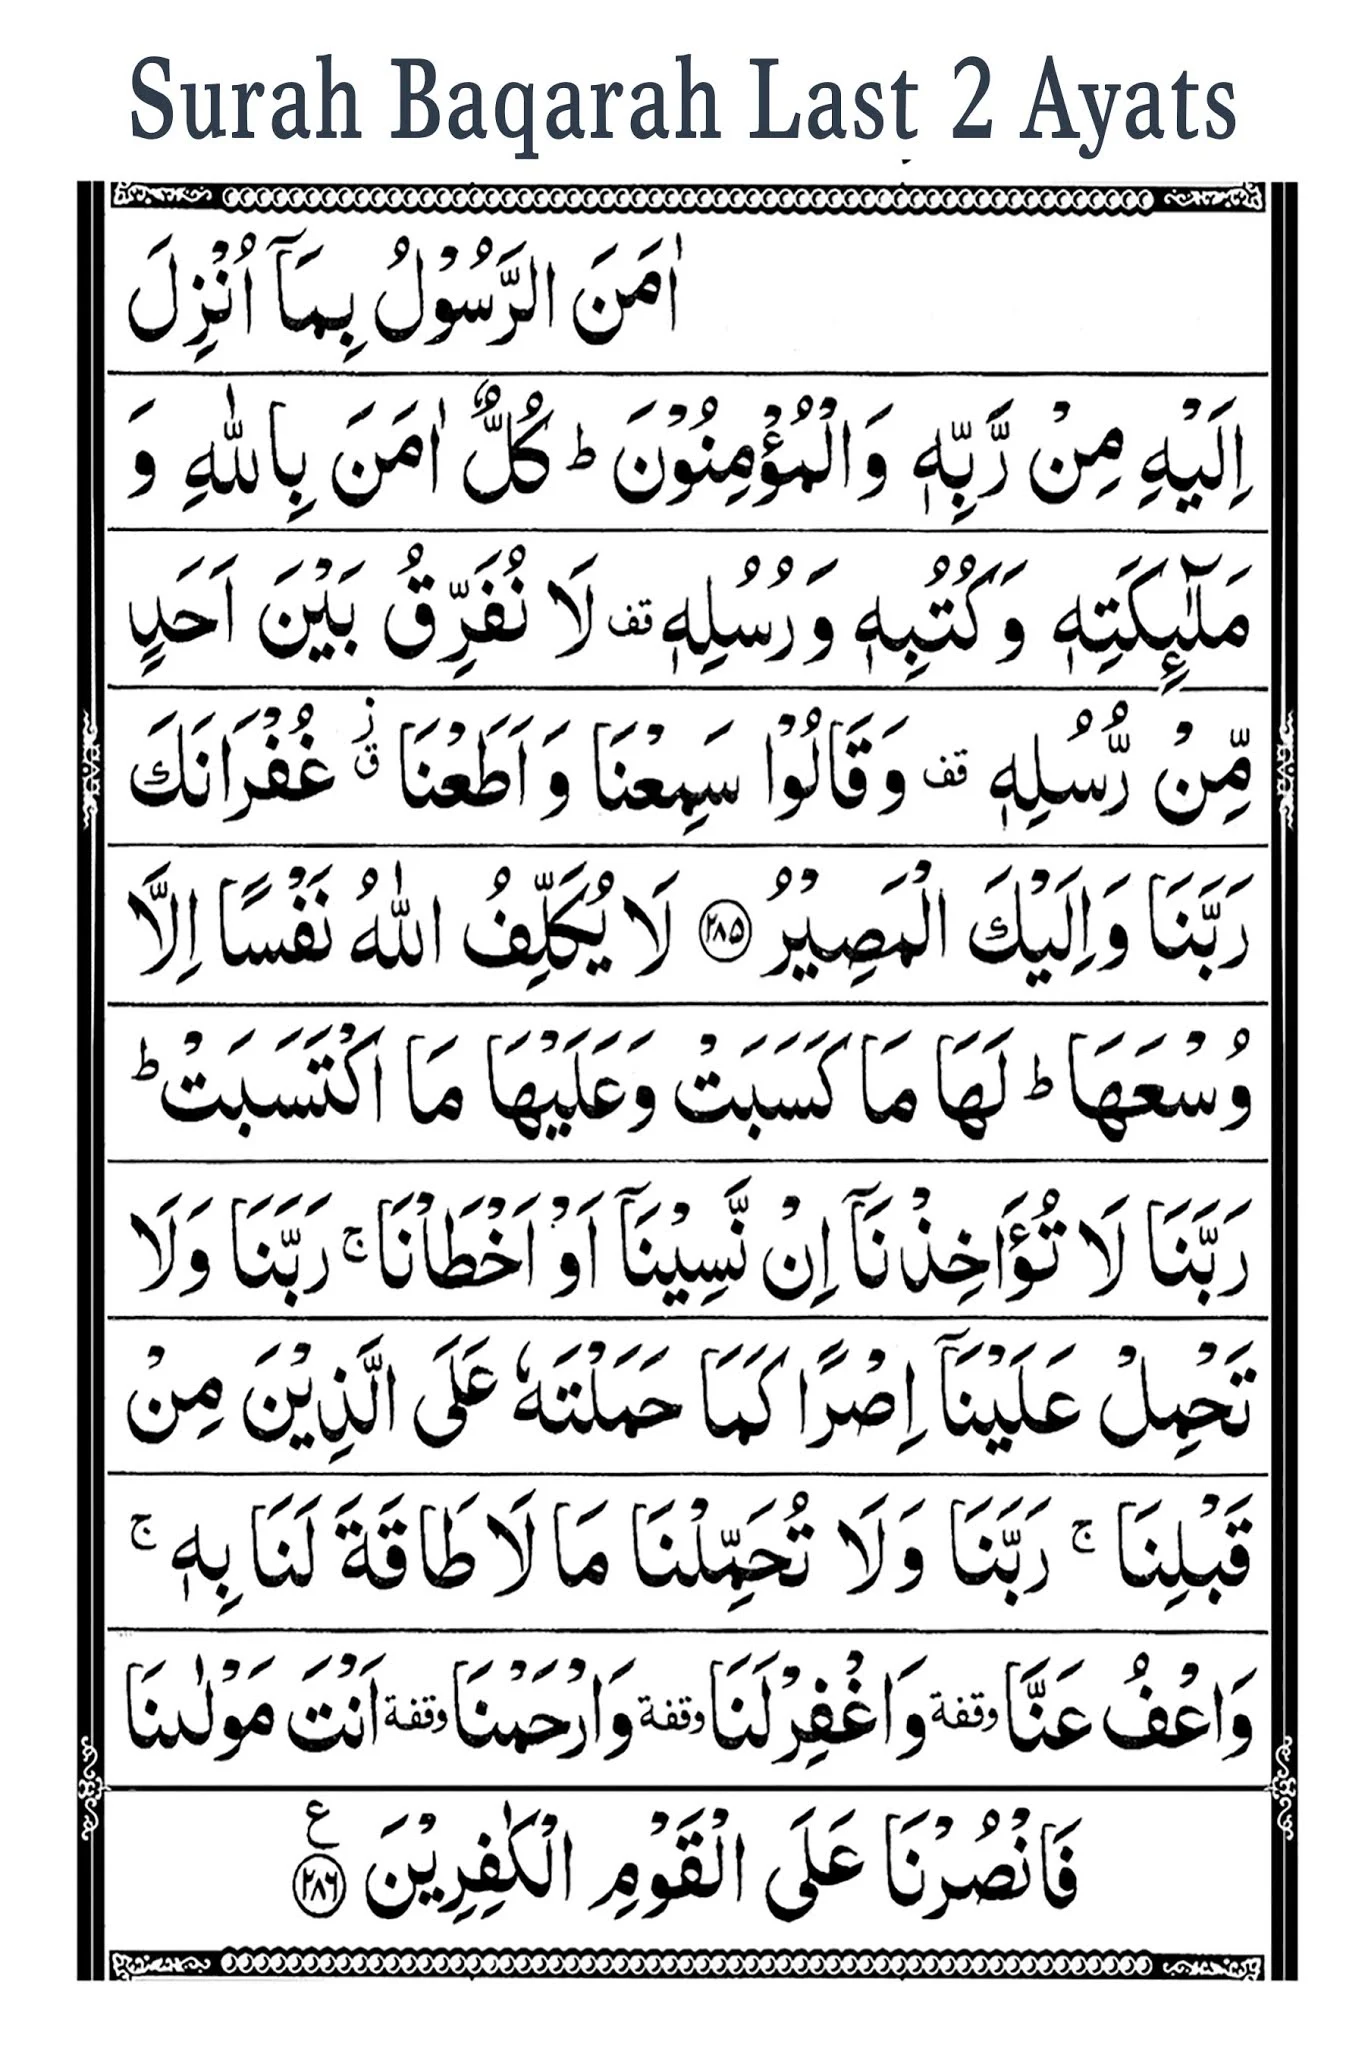 Surah Baqarah Last 2 Ayats
اٰمَنَ الرَّسُوْلُ بِمَاۤ اُنْزِلَ
اِلَيْهِ مِنْ رَّبِّهٖ وَالْمُؤْمِنُوْنَ ؕ كُلٌّ اٰمَنَ بِاللّٰهِ وَ
مَلٰٓئِكَتِهٖ وَكُتُبِهٖ وَرُسُلِهٖ قف لَا نُفَرِّقُ بَيْنَ اَحَدٍ
مِّنْ رُّسُلِهٖ قف وَقَالُوْا سَمِعْنَا وَاَطَعْنَا ز ق غُفْرَانَكَ
رَبَّنَا وَاِلَيْكَ الْمَصِيْرُ ۲۸۵ لَا يُكَلِّفُ اللّٰهُ نَفْسًا اِلَّا
وُسْعَهَا ؕ لَهَا مَا كَسَبَتْ وَعَلَيْهَا مَا اكْتَسَبَتْ ؕ
رَبَّنَا لَا تُؤَاخِذْنَاۤ اِنْ نَّسِيْنَاۤ اَوْ اَخْطَاْنَا ۚ رَبَّنَا وَلَا
تَحْمِلْ عَلَيْنَاۤ اِصْرًا كَمَا حَمَلْتَهٗ عَلَى الَّذِيْنَ مِنْ
قَبْلِنَا ۚ رَبَّنَا وَلَا تُحَمِّلْنَا مَا لَا طَاقَةَ لَنَا بِهٖ ۚ
وَاعْفُ عَنَّا وقفة وَاغْفِرْ لَنَا وقفة وَارْحَمْنَا وقفة اَنْتَ مَوْلٰىنَا
فَانْصُرْنَا عَلَى الْقَوْمِ الْكٰفِرِيْنَ ۲۸۶ ع